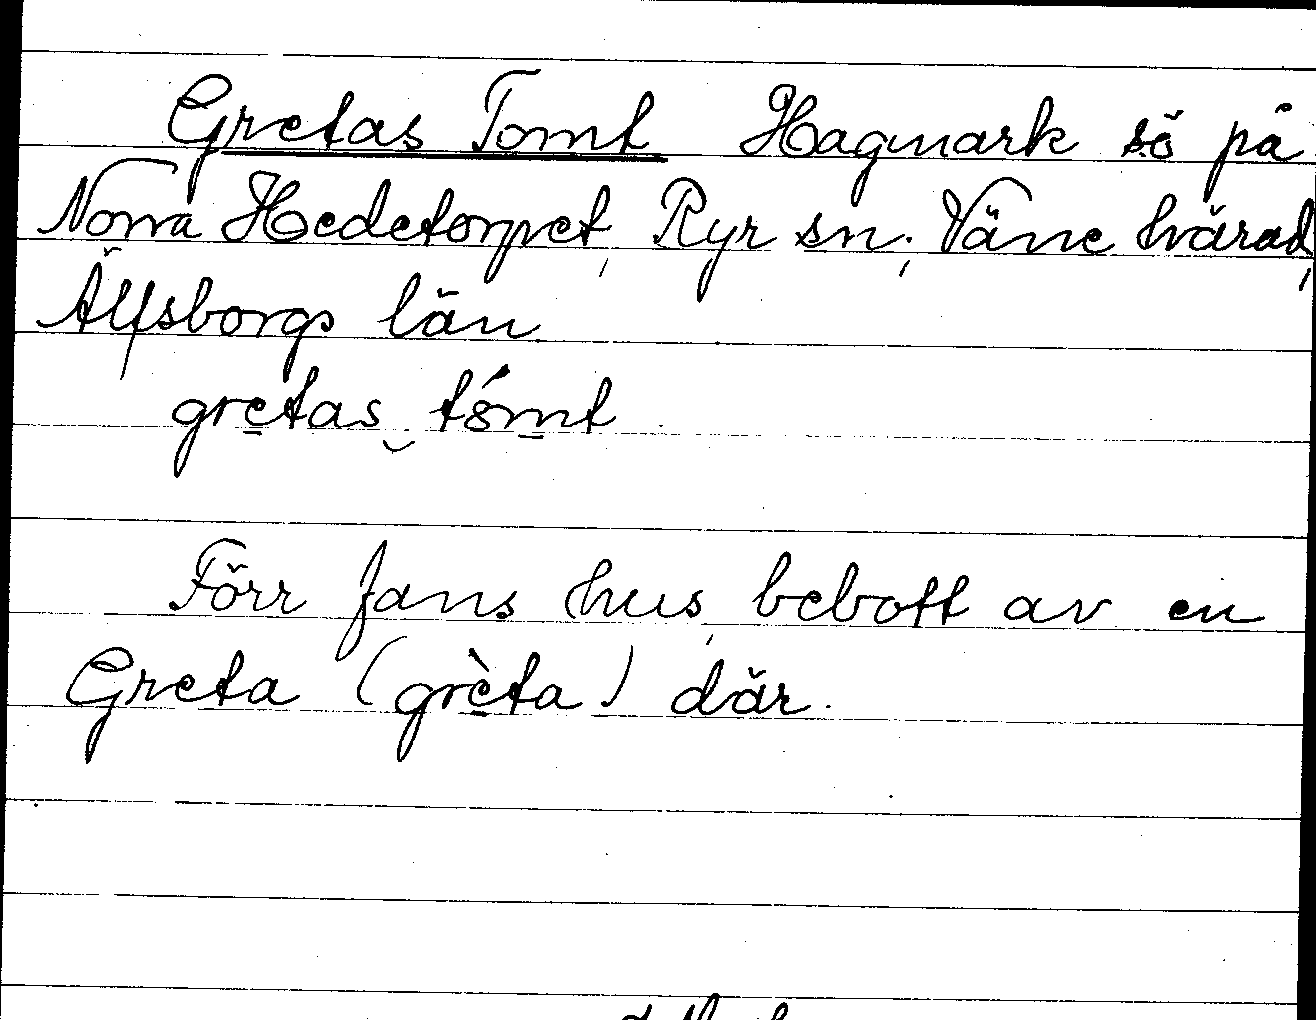 Gretas Tomt Hagmark sö på
Norra Hedetorpet, Ryr sn., Väne härad,
Älfsborgs län.
gretas tómt
Förr fans hus, bebott av en
Greta (grèta) där.